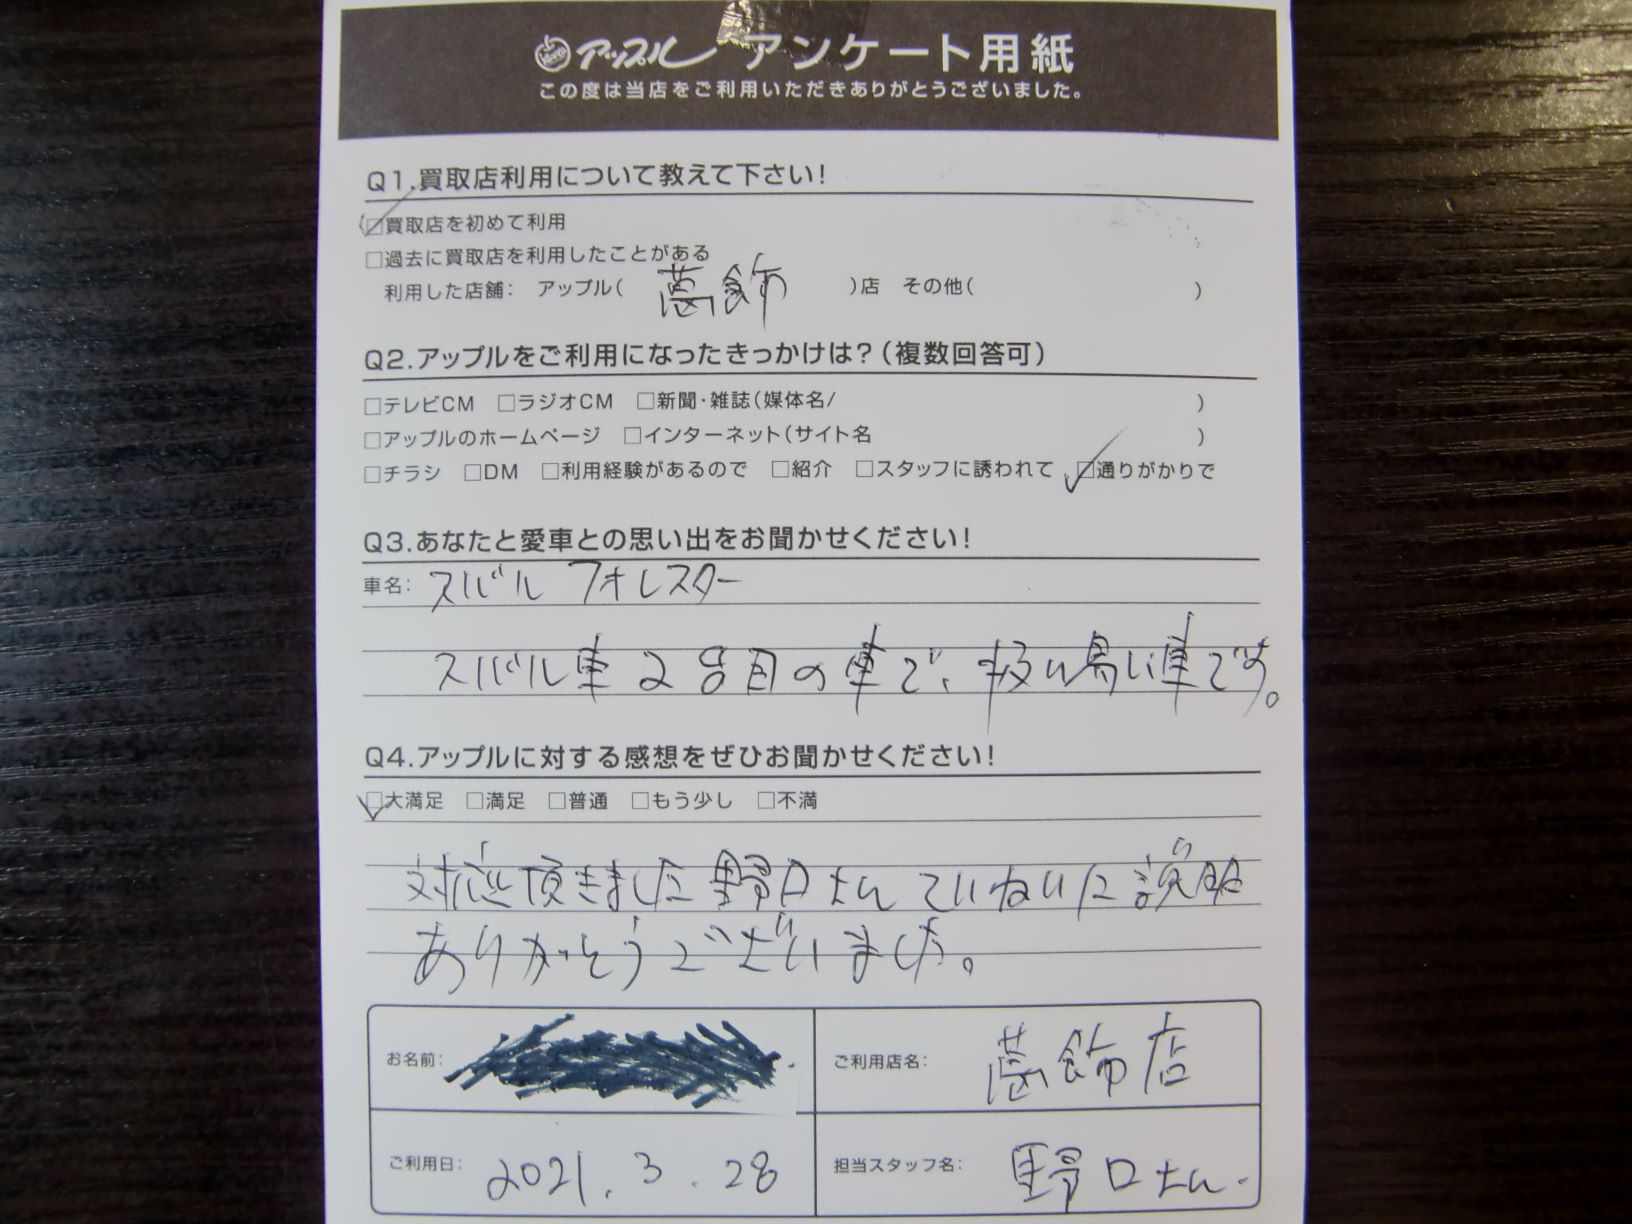 アップル アンケート用紙
この度は当店をご利用いただきありがとうございました。
Q1.買取店利用について教えて下さい!
☑買取店を初めて利用
□過去に買取店を利用したことがある
利用した店舗: アップル( 葛飾 )店 その他( )
Q2.アップルをご利用になったきっかけは?(複数回答可)
□テレビCM □ラジオCM □新聞・雑誌(媒体名/ )
□アップルのホームページ □インターネット(サイト名 )
□チラシ □DM □利用経験があるので □紹介 □スタッフに誘われて ☑通りがかりで
Q3.あなたと愛車との思い出をお聞かせください!
車名: スバル フォレスター
スバル車2台目の車で、扱い易い車です。
Q4.アップルに対する感想をぜひお聞かせください!
☑大満足 □満足 □普通 □もう少し □不満
対応頂きました野口さんていねいに説明
ありがとうございました。
お名前:
ご利用店名: 葛飾店
ご利用日: 2021.3.28
担当スタッフ名: 野口さん.